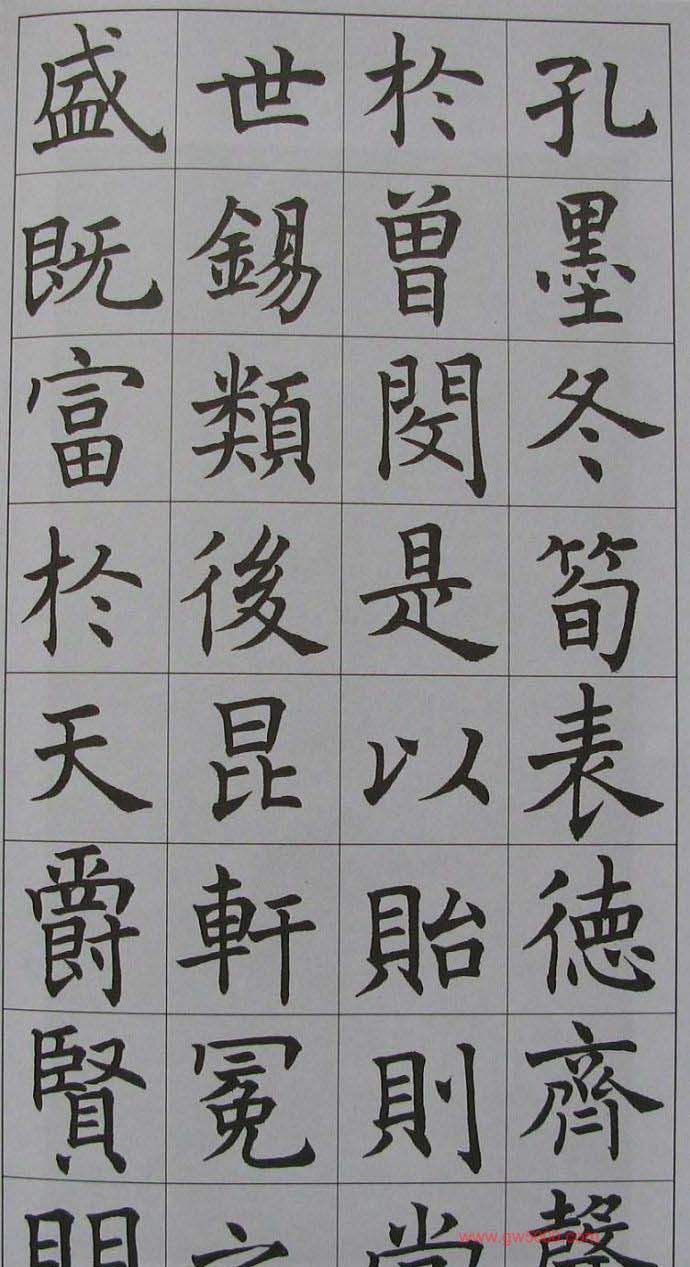 孔墨冬筍表德齊馨
於曾閔是以貽則當
世錫類後昆軒冕之
盛既富於天爵賢